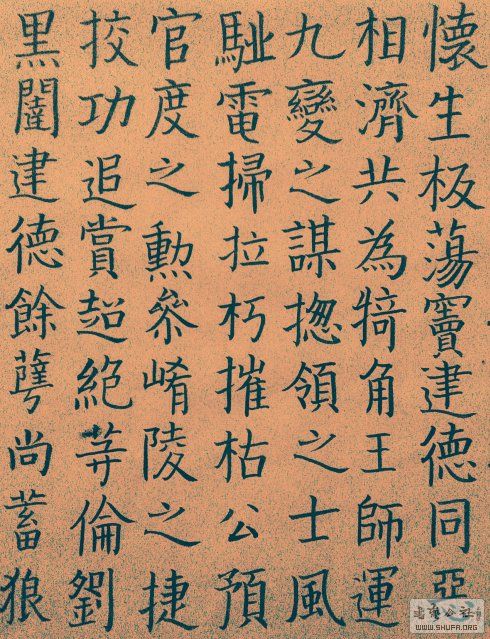 懐生板蕩竇建德同惡
相濟共為犄角王師運
九變之謀揔領之士風
馳電掃拉朽摧枯公預
官度之勲叅崤陵之捷
挍功追賞超絶等倫劉
黒闥建德餘孽尚蓄狼
WWW.SHUFA.ORG